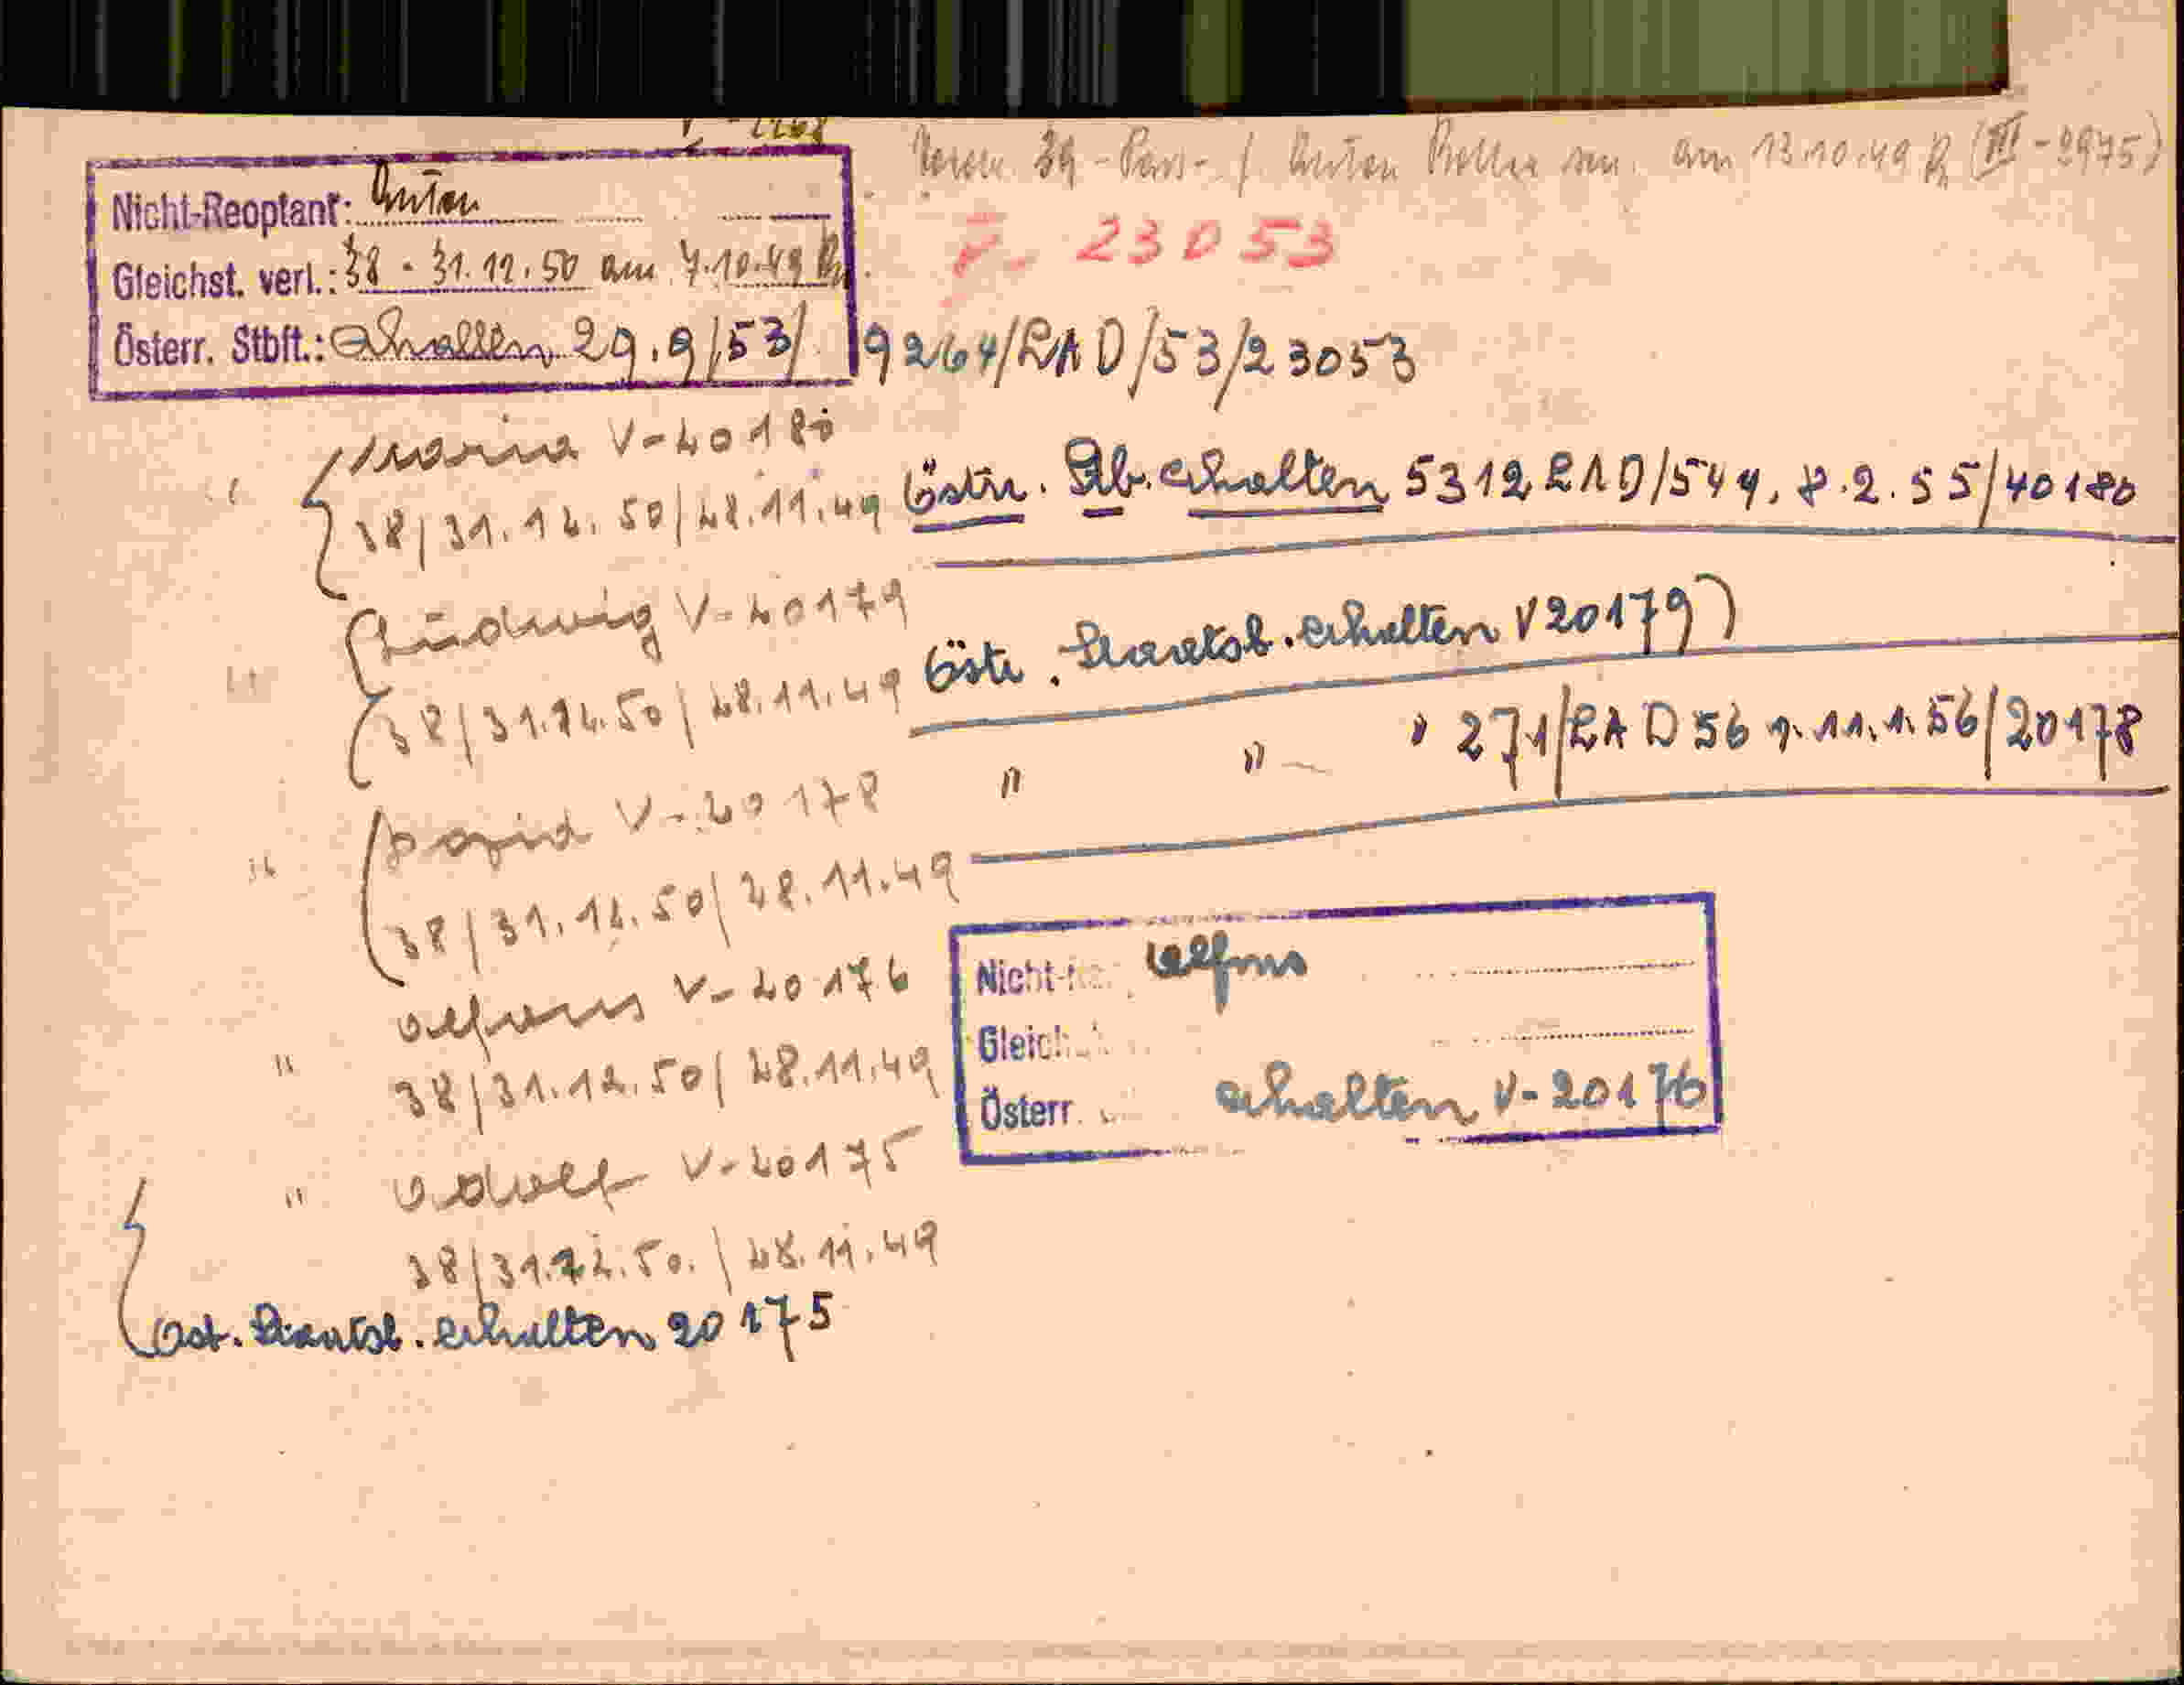 am 13.10.49 (III-2975)
Nicht-Reoptant: Anton
Gleichst. verl.: 38 - 31.12.50 am 7.10.49
F. 23053
Österr. Stbft.: Erhalten 29.9/53/ 9264/LAD/53/23053
Maria V-20180
38/31.12.50/28.11.49 Östr. Stb. erhalten 5312 LAD/54 v. 8.2.55/40180
Ludwig V-20179
38/31.12.50/28.11.49 Östr. Staatsb. erhalten V 20179)
V-20178 " " - " 271/LAD 56 v. 11.1.56/20178
" 38/31.12.50/28.11.49
Alfons V-20176
" 38/31.12.50/28.11.49
Nicht- Alfons
Gleich
Österr. erhalten V-20176
" Adolf V-20175
38/31.12.50./28.11.49
Öst. Staatsb. erhalten 20175